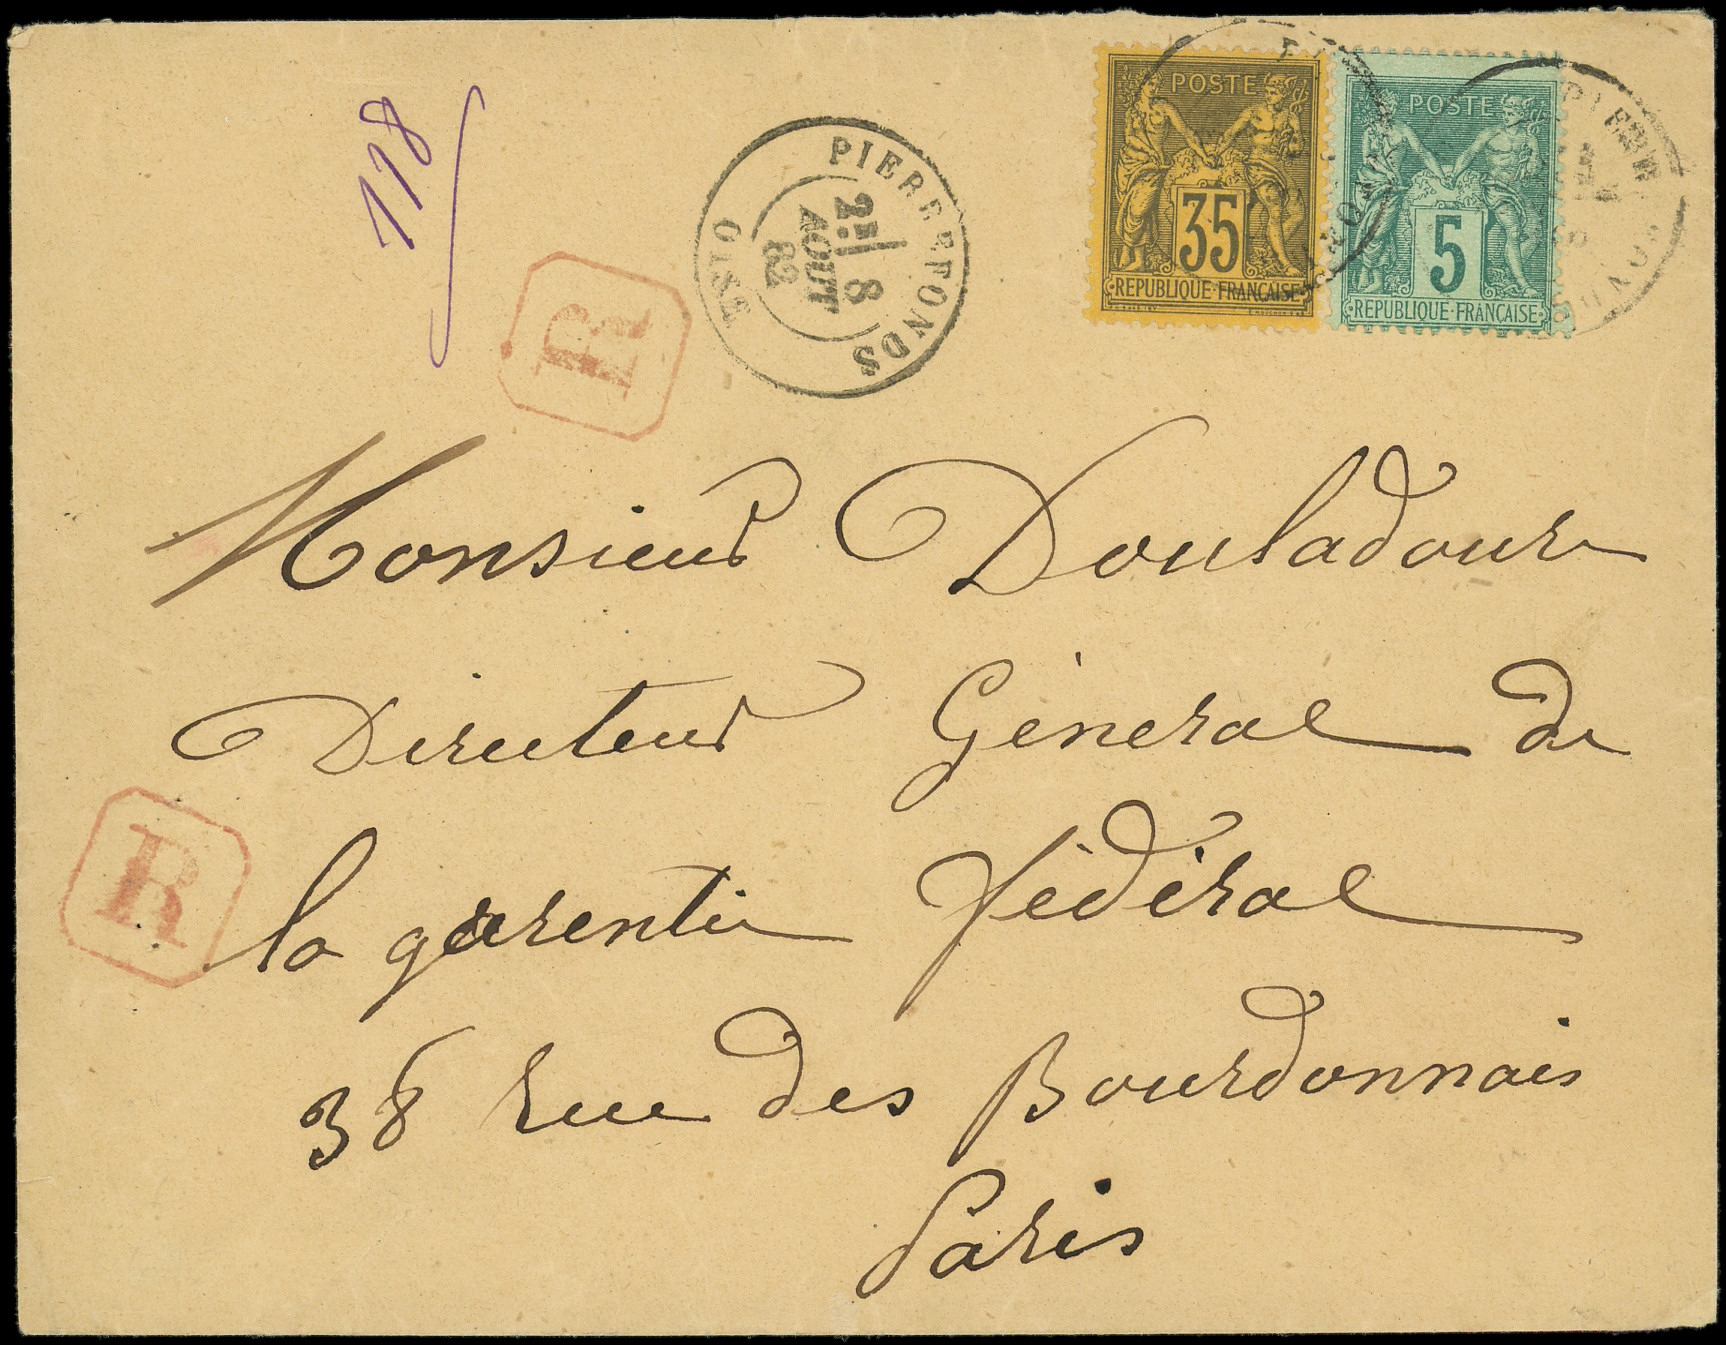 118
R
PIERREFONDS
2E 8
AOUT
82
OISE
POSTE
35
REPUBLIQUE FRANÇAISE
POSTE
5
REPUBLIQUE FRANÇAISE
Monsieur Douladour
Directeur Général de
la garentie fédéral
R
38 rue des Bourdonnais
Paris